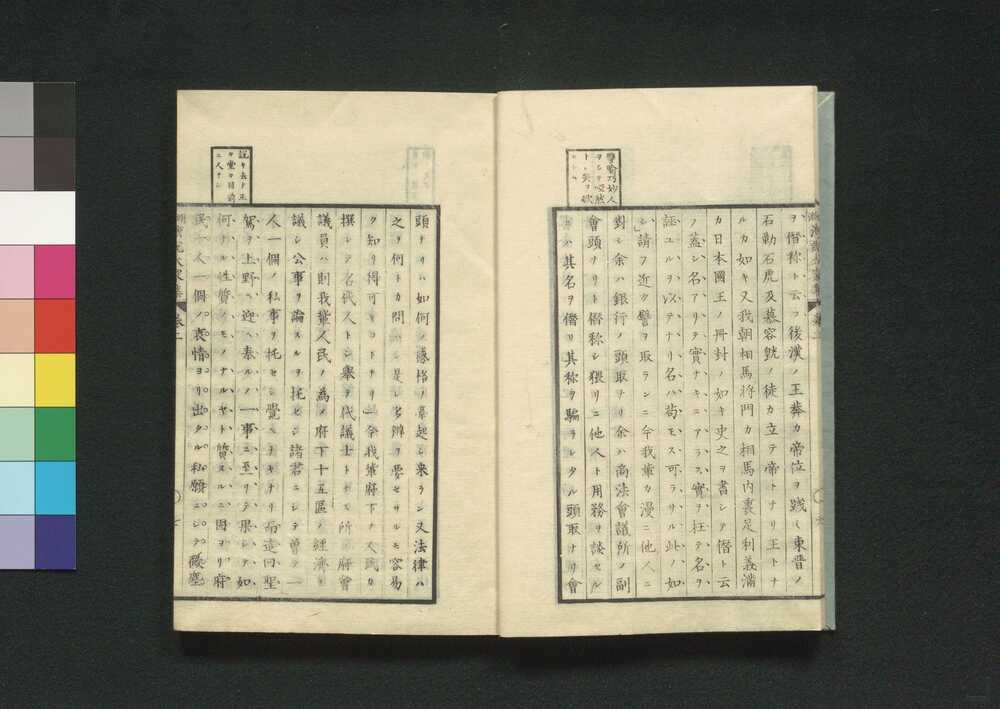 ヲ僭称ト云フ後漢ノ王莽カ帝位ヲ践ミ東晋ノ
石勒石虎及慕容皝ノ徒カ立テ帝トナリ王トナ
ルカ如キ又我朝相馬将門カ相馬内裏足利義満
カ日本國王ノ冊封ノ如キ史之ヲ書シテ僭ト云
フ蓋シ名アリテ實ナキニアラス實ヲ枉テ名ヲ
誣ユルヲ以テナリ名ハ苟モス可ラサル此ノ如
シ請フ近ク譬ヲ取ランニ今我輩カ漫ニ他人ニ
對シ余ハ銀行ノ頭取ナリ余ハ商法會議所ノ副
會頭ナリト僭称シ猥リニ他人ト用務ヲ談セル
其名ヲ僭リ其称ヲ騙ラレタル頭取ナリ會
譬喩巧妙人
頭ナリハ如何ノ感格ノ萃起シ来ラン又法律ハ
之ヲ何トカ問ハン是レ多辨ヲ要セサルモ容易
ク知リ得可キコトナリ今我輩府下ノ人民カ
撰レテ名代人トシ舉テ代議士トナス所ノ府會
議員ハ則我輩人民ノ為メ府下十五區ノ經濟ヲ
議シ公事ヲ論スルヲ托セシ諸君ニシテ曽テ一
人一個ノ私事ヲ托セシ覺ヘナキナリ而這回聖
駕ヲ上野ニ迎ヘ奉ルノ一事ニ至リテ果シテ如
何ナル性質ノモノナルヤト質スルニ因ヨリ府
民一人一個ノ衷情ヨリ出タル私願ニシテ
説キ去テ正